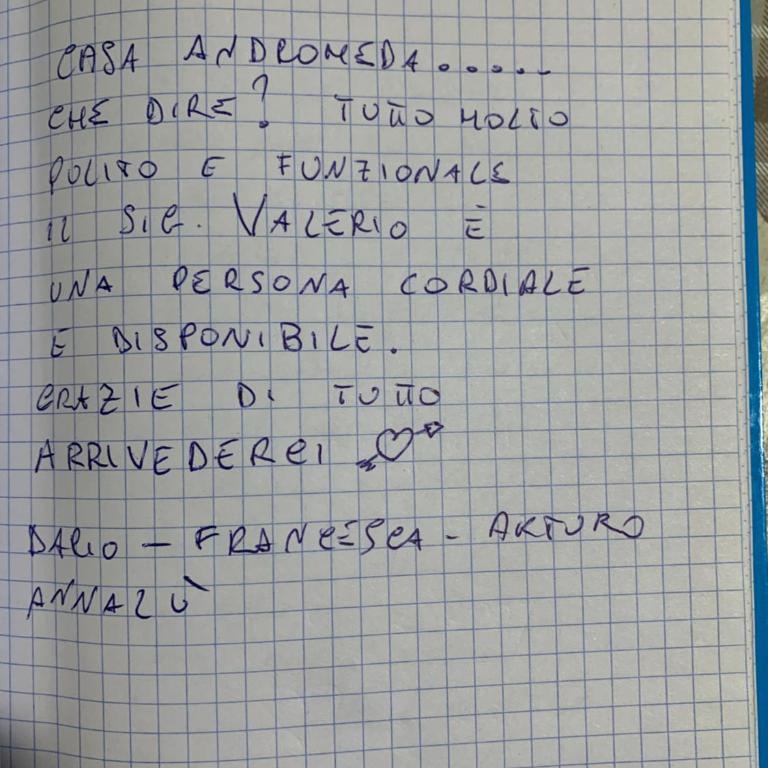 CASA ANDROMEDA.....
CHE DIRE? TUTTO MOLTO
PULITO E FUNZIONALE
IL SIG. VALERIO È
UNA PERSONA CORDIALE
E DISPONIBILE.
GRAZIE DI TUTTO
ARRIVEDERCI
DARIO - FRANCESCA - ARTURO
ANNALÙ